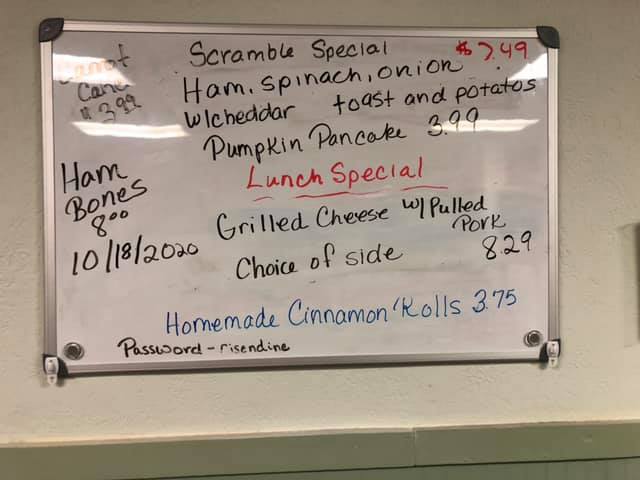 Carrot
Cake
$ 3.99
Scramble Special $7.49
Ham, spinach, onion
w/cheddar toast and potatos
Pumpkin Pancake 3.99
Ham
Bones
8.00
10/18/2020
Lunch Special
Grilled Cheese w/ Pulled
Pork
Choice of side 8.29
Homemade Cinnamon Rolls 3.75
Password - risendine